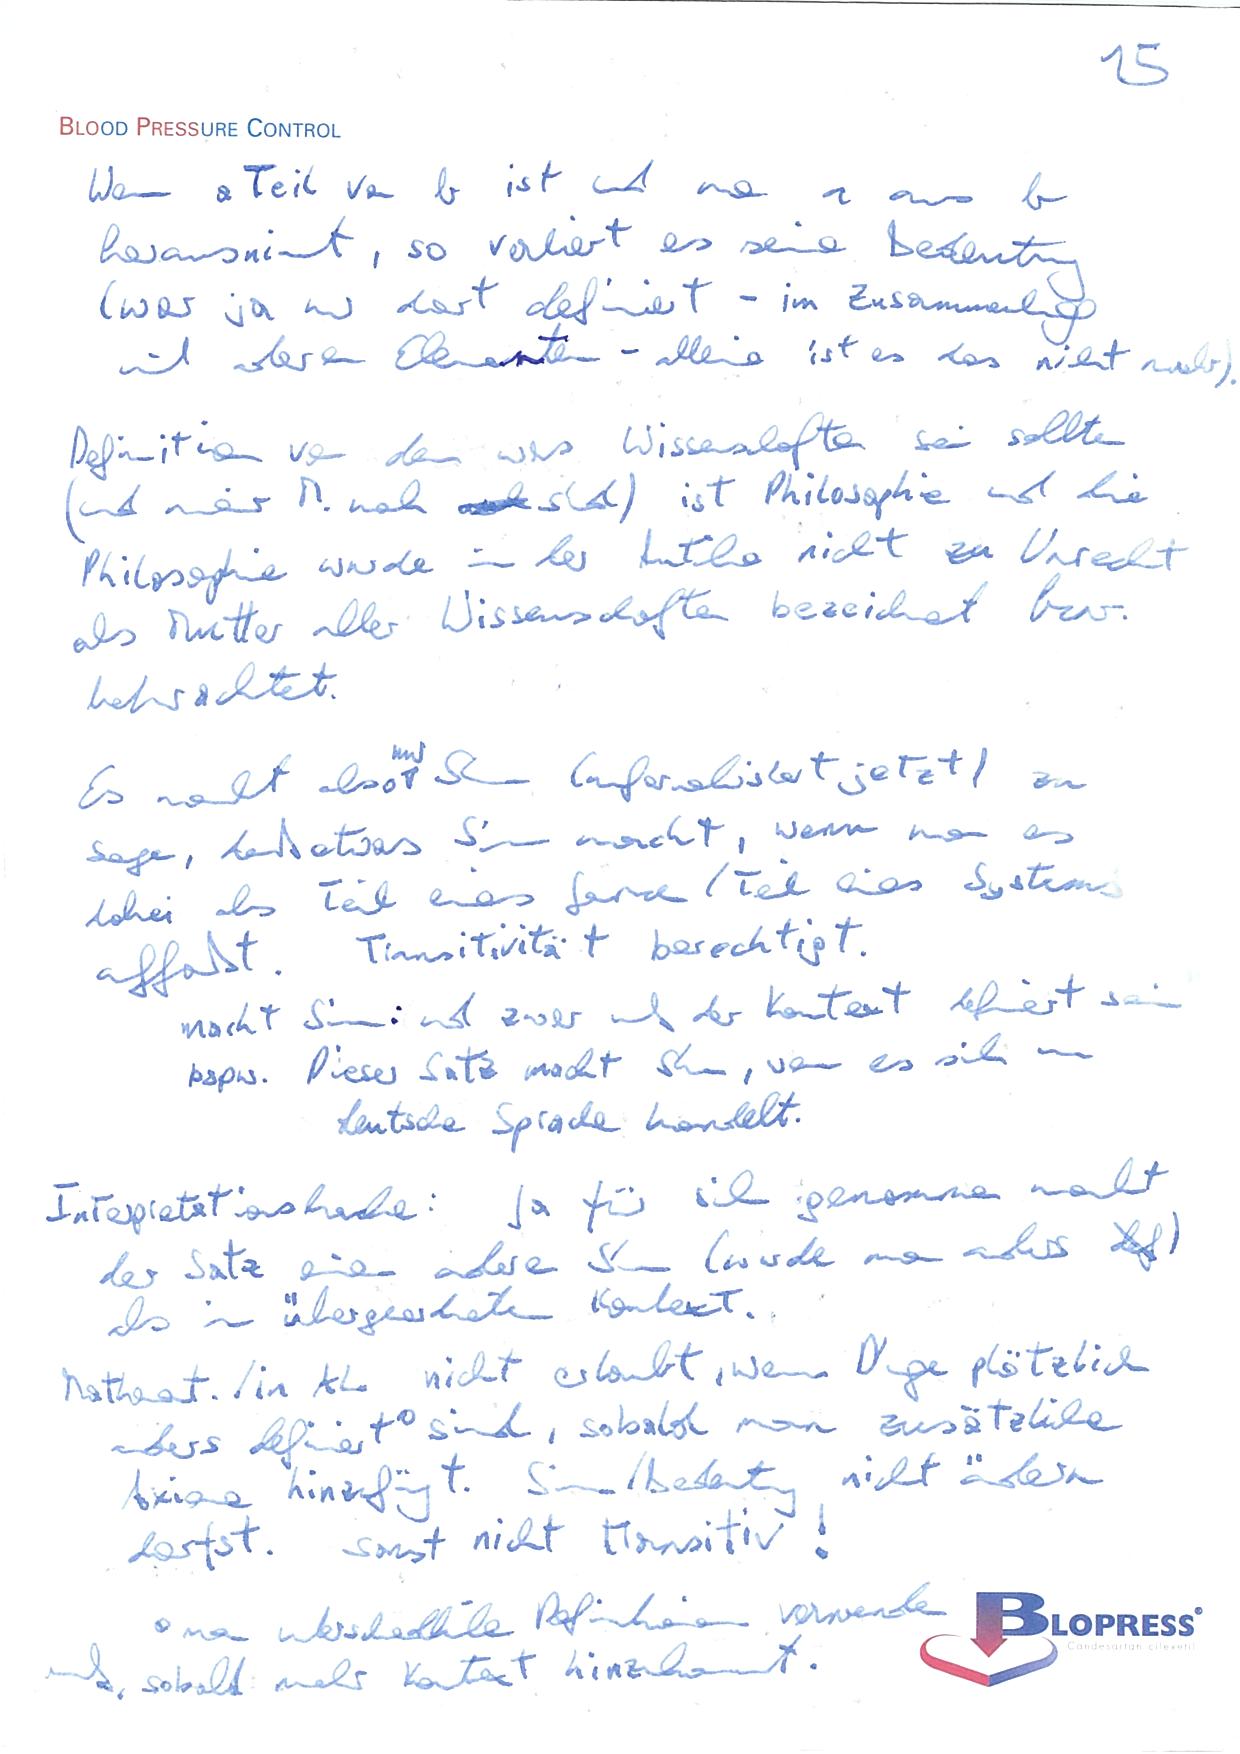 15
BLOOD PRESSURE CONTROL
Wenn a Teil von b ist und man a aus b
herausnimmt, so verliert es seine Bedeutung
(war ja nur dort definiert - im Zusammenhang
mit anderen Elementen - alleine ist es das nicht mehr).
Definition von dem was Wissenschaften sein sollten
(und meiner M. nach sind) ist Philosophie und die
Philosophie wurde in der Antike nicht zu Unrecht
als Mutter aller Wissenschaften bezeichnet bzw.
betrachtet.
Es macht also nur Sinn jetzt) zu
sagen, daß etwas Sinn macht, wenn man es
dabei als Teil eines / Teil eines Systems
auffaßt. Transitivität berechtigt.
macht Sinn: und zwar muß der Kontext definiert sein
bspw. Dieser Satz macht Sinn, wenn es sich um
deutsche Sprache handelt.
Ja für sich genommen macht
der Satz einen anderen Sinn (wurde man anders def)
als in übergeordneten Kontext.
Mathemat. / in AL nicht erlaubt, wenn Dinge plötzlich
anders definiert° sind, sobald man zusätzliche
Axiome hinzufügt. Sinn/Bedeutung nicht ändern
darfst. sonst nicht transitiv!
° man unterschiedliche Definitionen verwenden
muß, sobald mehr Kontext hinzukommt.
BLOPRESS®
Candesartan cilexetil